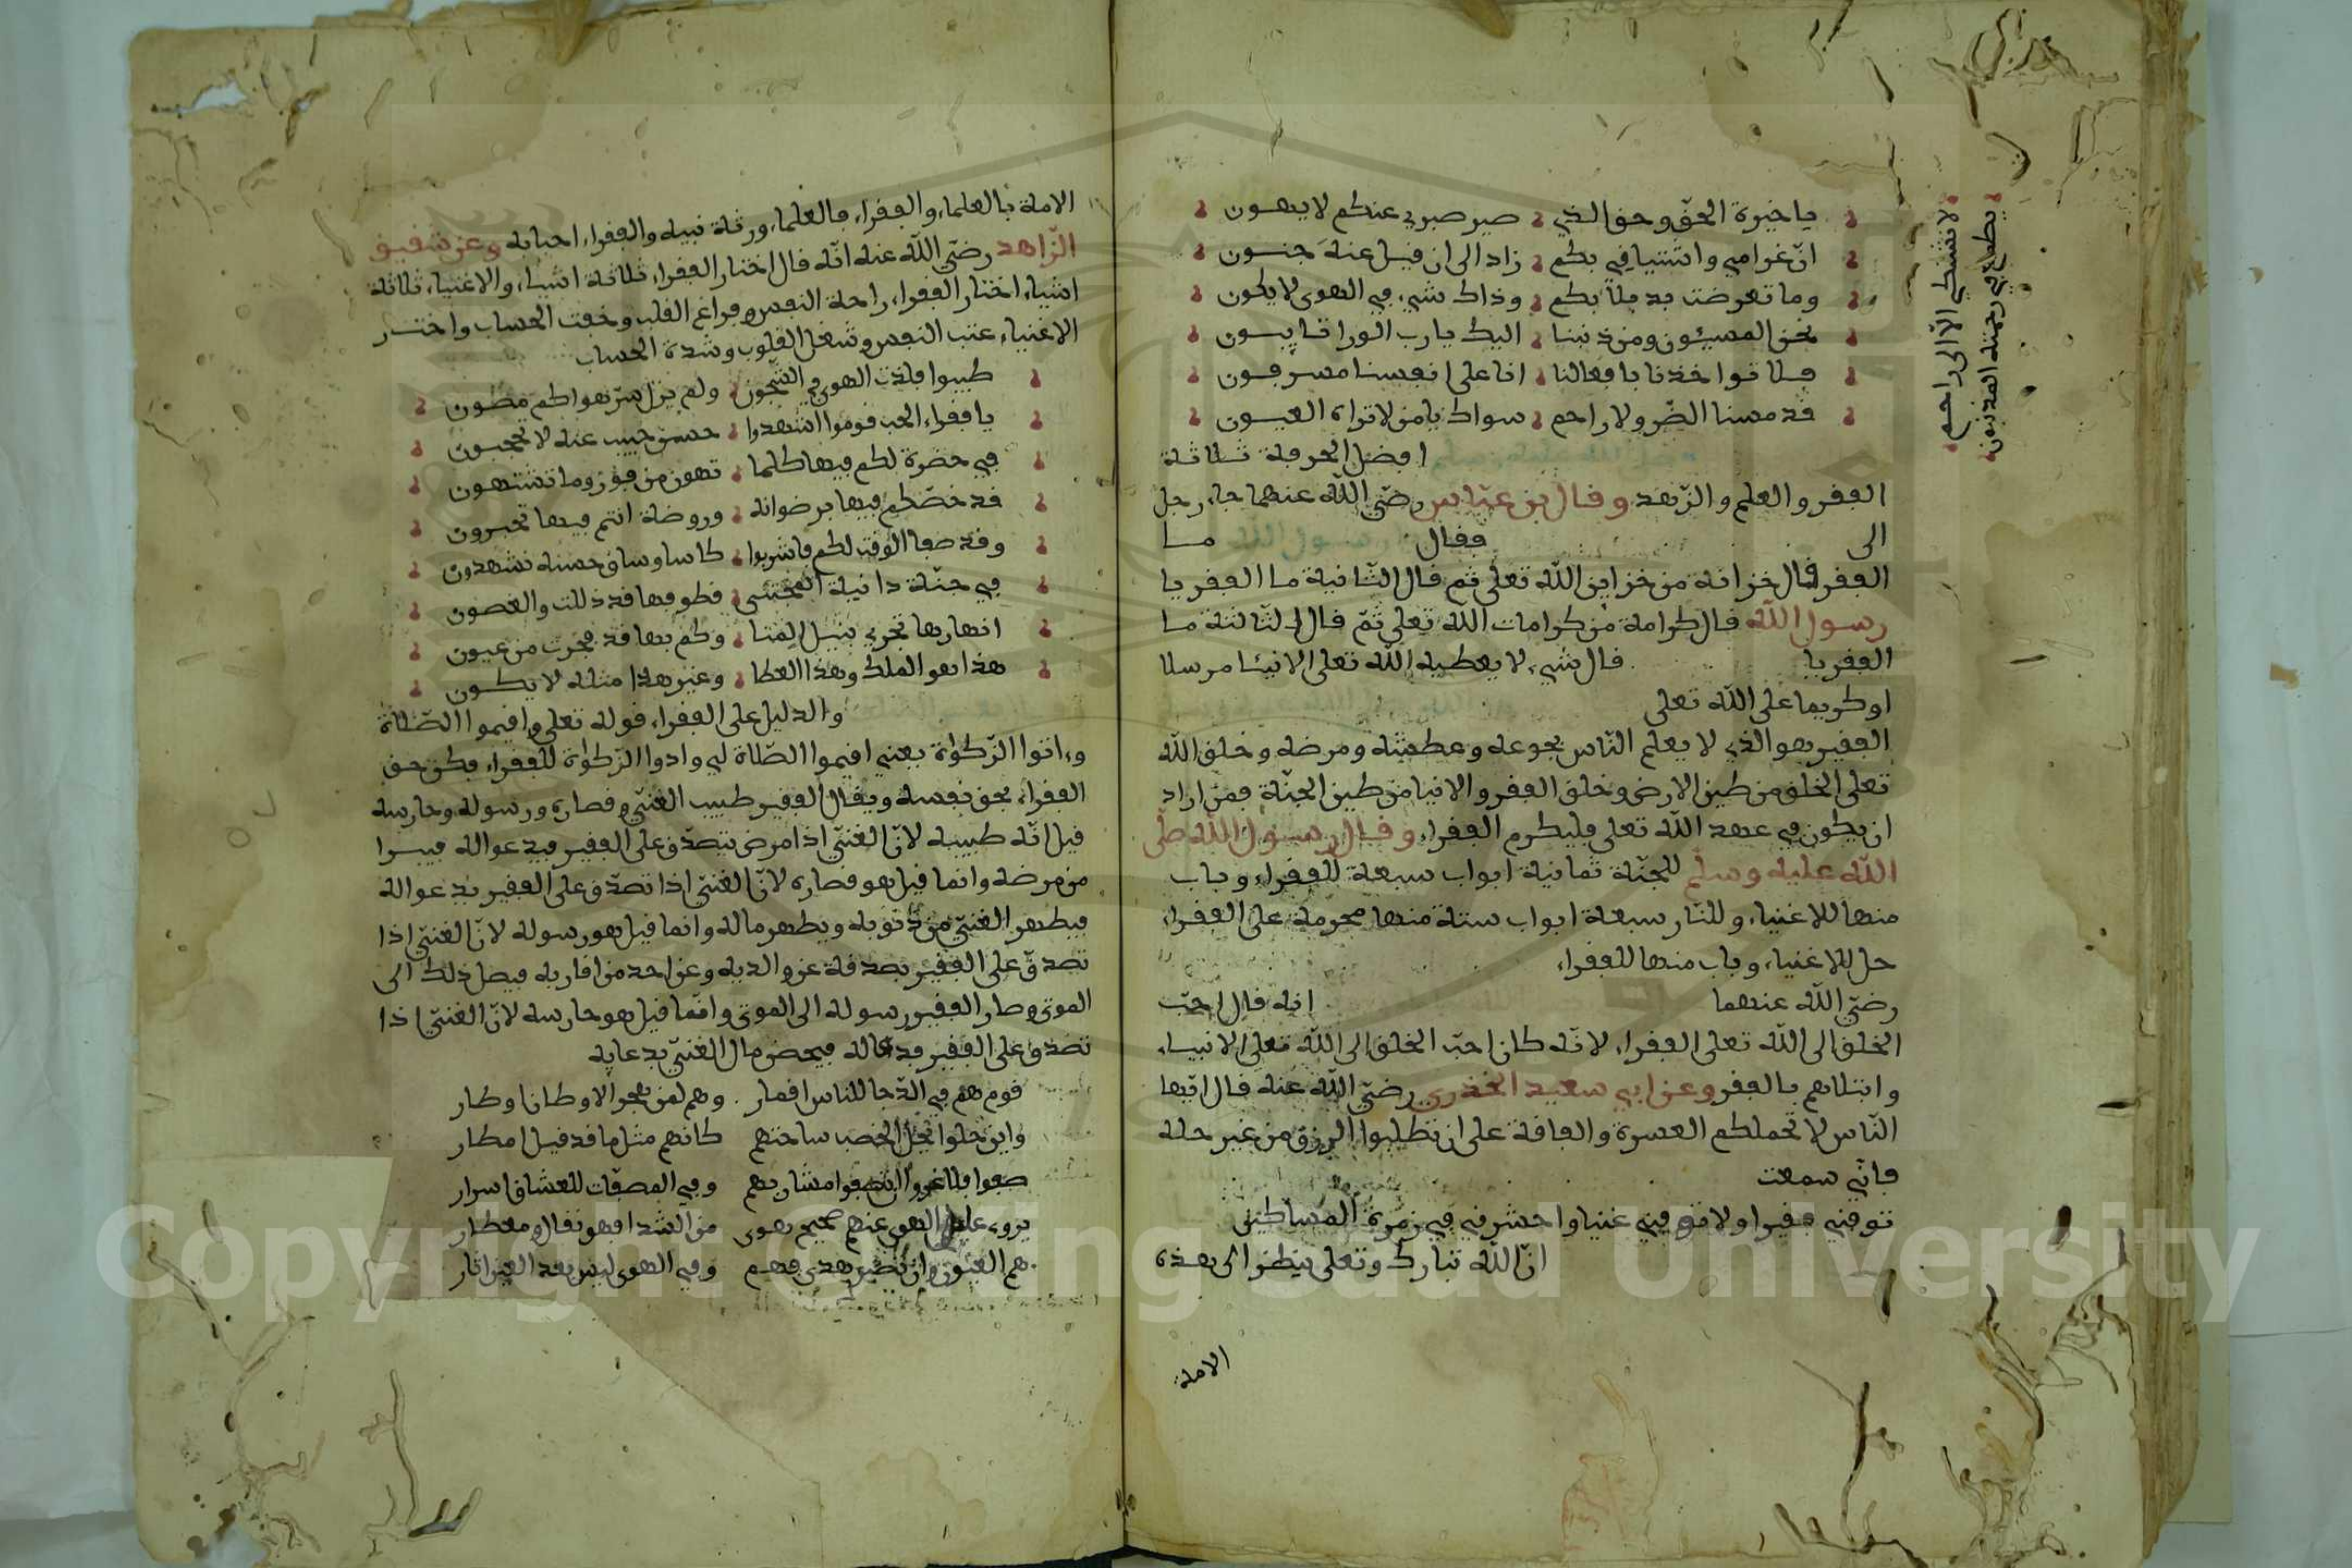 يا خيرة الحق وحق الذي صير صبري عنكم لا يهون
ان غرامي واشتياقي بكم زاد الى ان قيل عنه جنون
وما تعرضت بديلا بكم وذاك شيء في الهوى لا يكون
نحن المسيئون ومن ذنبنا اليك يا رب الورا تايبون
فلا تواخذنا بافعالنا انا على انفسنا مسرفون
قد مسنا الضر ولا راحم سواك يا من لا تراه العيون
لا تشتكي الا الى راحم
يطمع في رحمته المذنبون
افضل الحرفة ثلاثة
الفقر والعلم والزهد وقال بن عباس رضي الله عنهما جاء رجل
الى فقال يا رسول الله ما
الفقر قال خزانة من خزاين الله تعلى ثم قال الثانية ما الفقر يا
رسول الله قال كرامة من كرامات الله تعلى ثم قال الثالثة ما
الفقر يا قال شيء لا يعطيه الله تعلى الا نبيا مرسلا
او كريما على الله تعلى
الفقير هو الذي لا يعلم الناس بجوعه وعطشه ومرضه وخلق الله
تعلى الخلق من طين الارض وخلق الفقر والانبيا من طين الجنة فمن اراد
ان يكون في عهد الله تعلى فليكرم الفقراء وقال رسول الله صلى
الله عليه وسلم للجنة ثمانية ابواب سبعة للفقراء وباب
منها للاغنياء وللنار سبعة ابواب ستة منها محرمة على الفقراء
حل للاغنياء وباب منها للفقراء
رضي الله عنهما انه قال احب
الخلق الى الله تعلى الفقراء لانه كان احب الخلق الى الله تعلى الانبياء
وابتلاهم بالفقر وعن ابي سعيد الخذري رضي الله عنه قال ايها
الناس لا تحملكم العسرة والفاقة على ان تطلبوا الرزق من غير حله
فاني سمعت
توفني فقيرا ولا توفني غنيا واحشرني في زمرة المساكين
ان الله تبارك وتعلى ينظر الى هذه
الامة
الامة بالعلماء والفقراء فالعلماء ورثة نبيه والفقراء احبابه وعن شقيق
الزاهد رضي الله عنه انه قال اختار الفقراء ثلاثة اشياء والاغنياء ثلاثة
اشياء اختار الفقراء راحة النفس وفراغ القلب وخفت الحساب واختــر
الاغنياء عتب النفس وشغل القلوب وشدة الحساب
طيبوا فلذت الهوى في الشجون ولم يزل سر هواكم مصون
يا فقراء الحب قوموا اشهدوا حسن حبيب عنه لا تحجبون
في حضرة لكم فيها كلما تهون من فوز وما تشتهون
قد خصكم فيها برضوانه وروضة انتم فيها تحبرون
وقد صفا الوقت لكم فاشربوا كاسا وساق حسنه تشهدون
في جنة دانية المجتنى قطوفها قد ذللت والغصون
انهارها تجري بنيل المنا وكم بها قد فجرت من عيون
هذا هو الملك وهذا العطا وغير هذا مثله لا يكون
والدليل على الفقراء قوله تعلى واقيموا الصلاة
وءاتوا الزكواة يعني اقيموا الصلاة لي وادوا الزكواة للفقراء فكن حق
الفقراء بحق نفسه ويقال الفقير طبيب الغني وقصاره ورسوله وحارسه
قيل انه طبيبه لان الغني اذا مرض تصدق على الفقير فيدعوا له فيبرا
من مرضه وانما قيل هو قصاره لان الغني اذا تصدق على الفقير يدعوا له
فيطهر الغني من ذنوبه ويطهر ماله وانما قيل هو رسوله لان الغني اذا
تصدق على الفقير بصدقة عن والديه وعن احد من اقاربه فيصل ذلك الى
الموتى وصار الفقير رسوله الى الموتى وانما قيل هو حارسه لان الغني اذا
تصدق على الفقير فدعا له فيحصن مال الغني بدعايه
قوم هم في الدجا للناس اقمار وهم لمن هجر الاوطان اوطار
واين حلوا تحل الخصب ساحتهم كانهم مثل ما قد قيل امطار
صفوا فلا غروا ان تصفوا مشاربهم وفي المصفات للعشاق اسرار
يروى عليل الهوى عنهم صحيح هوى من الشدا فهو نفال ومعطار
هم العيون وان تضير هدى فهم وفي الهوى ليس بعد العين اثار
Copyright © King Saud University